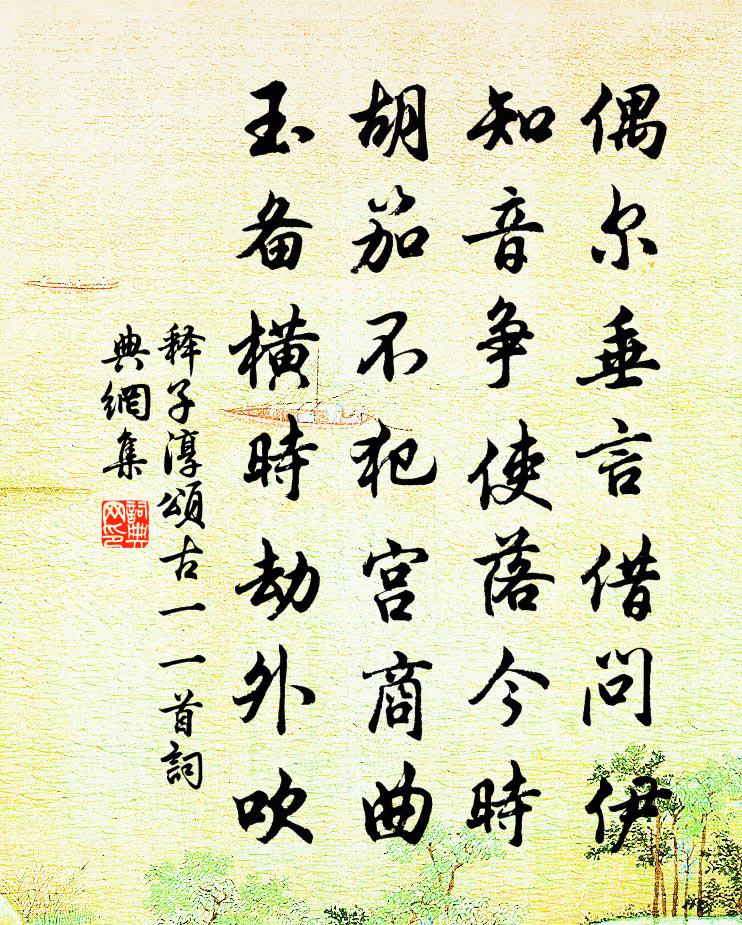 偶尔垂言借问伊
知音争使落今時
胡笳不犯宫商曲
玉备横時劫外吹
释子淳颂古一一首詞
典網集
詞典
网印